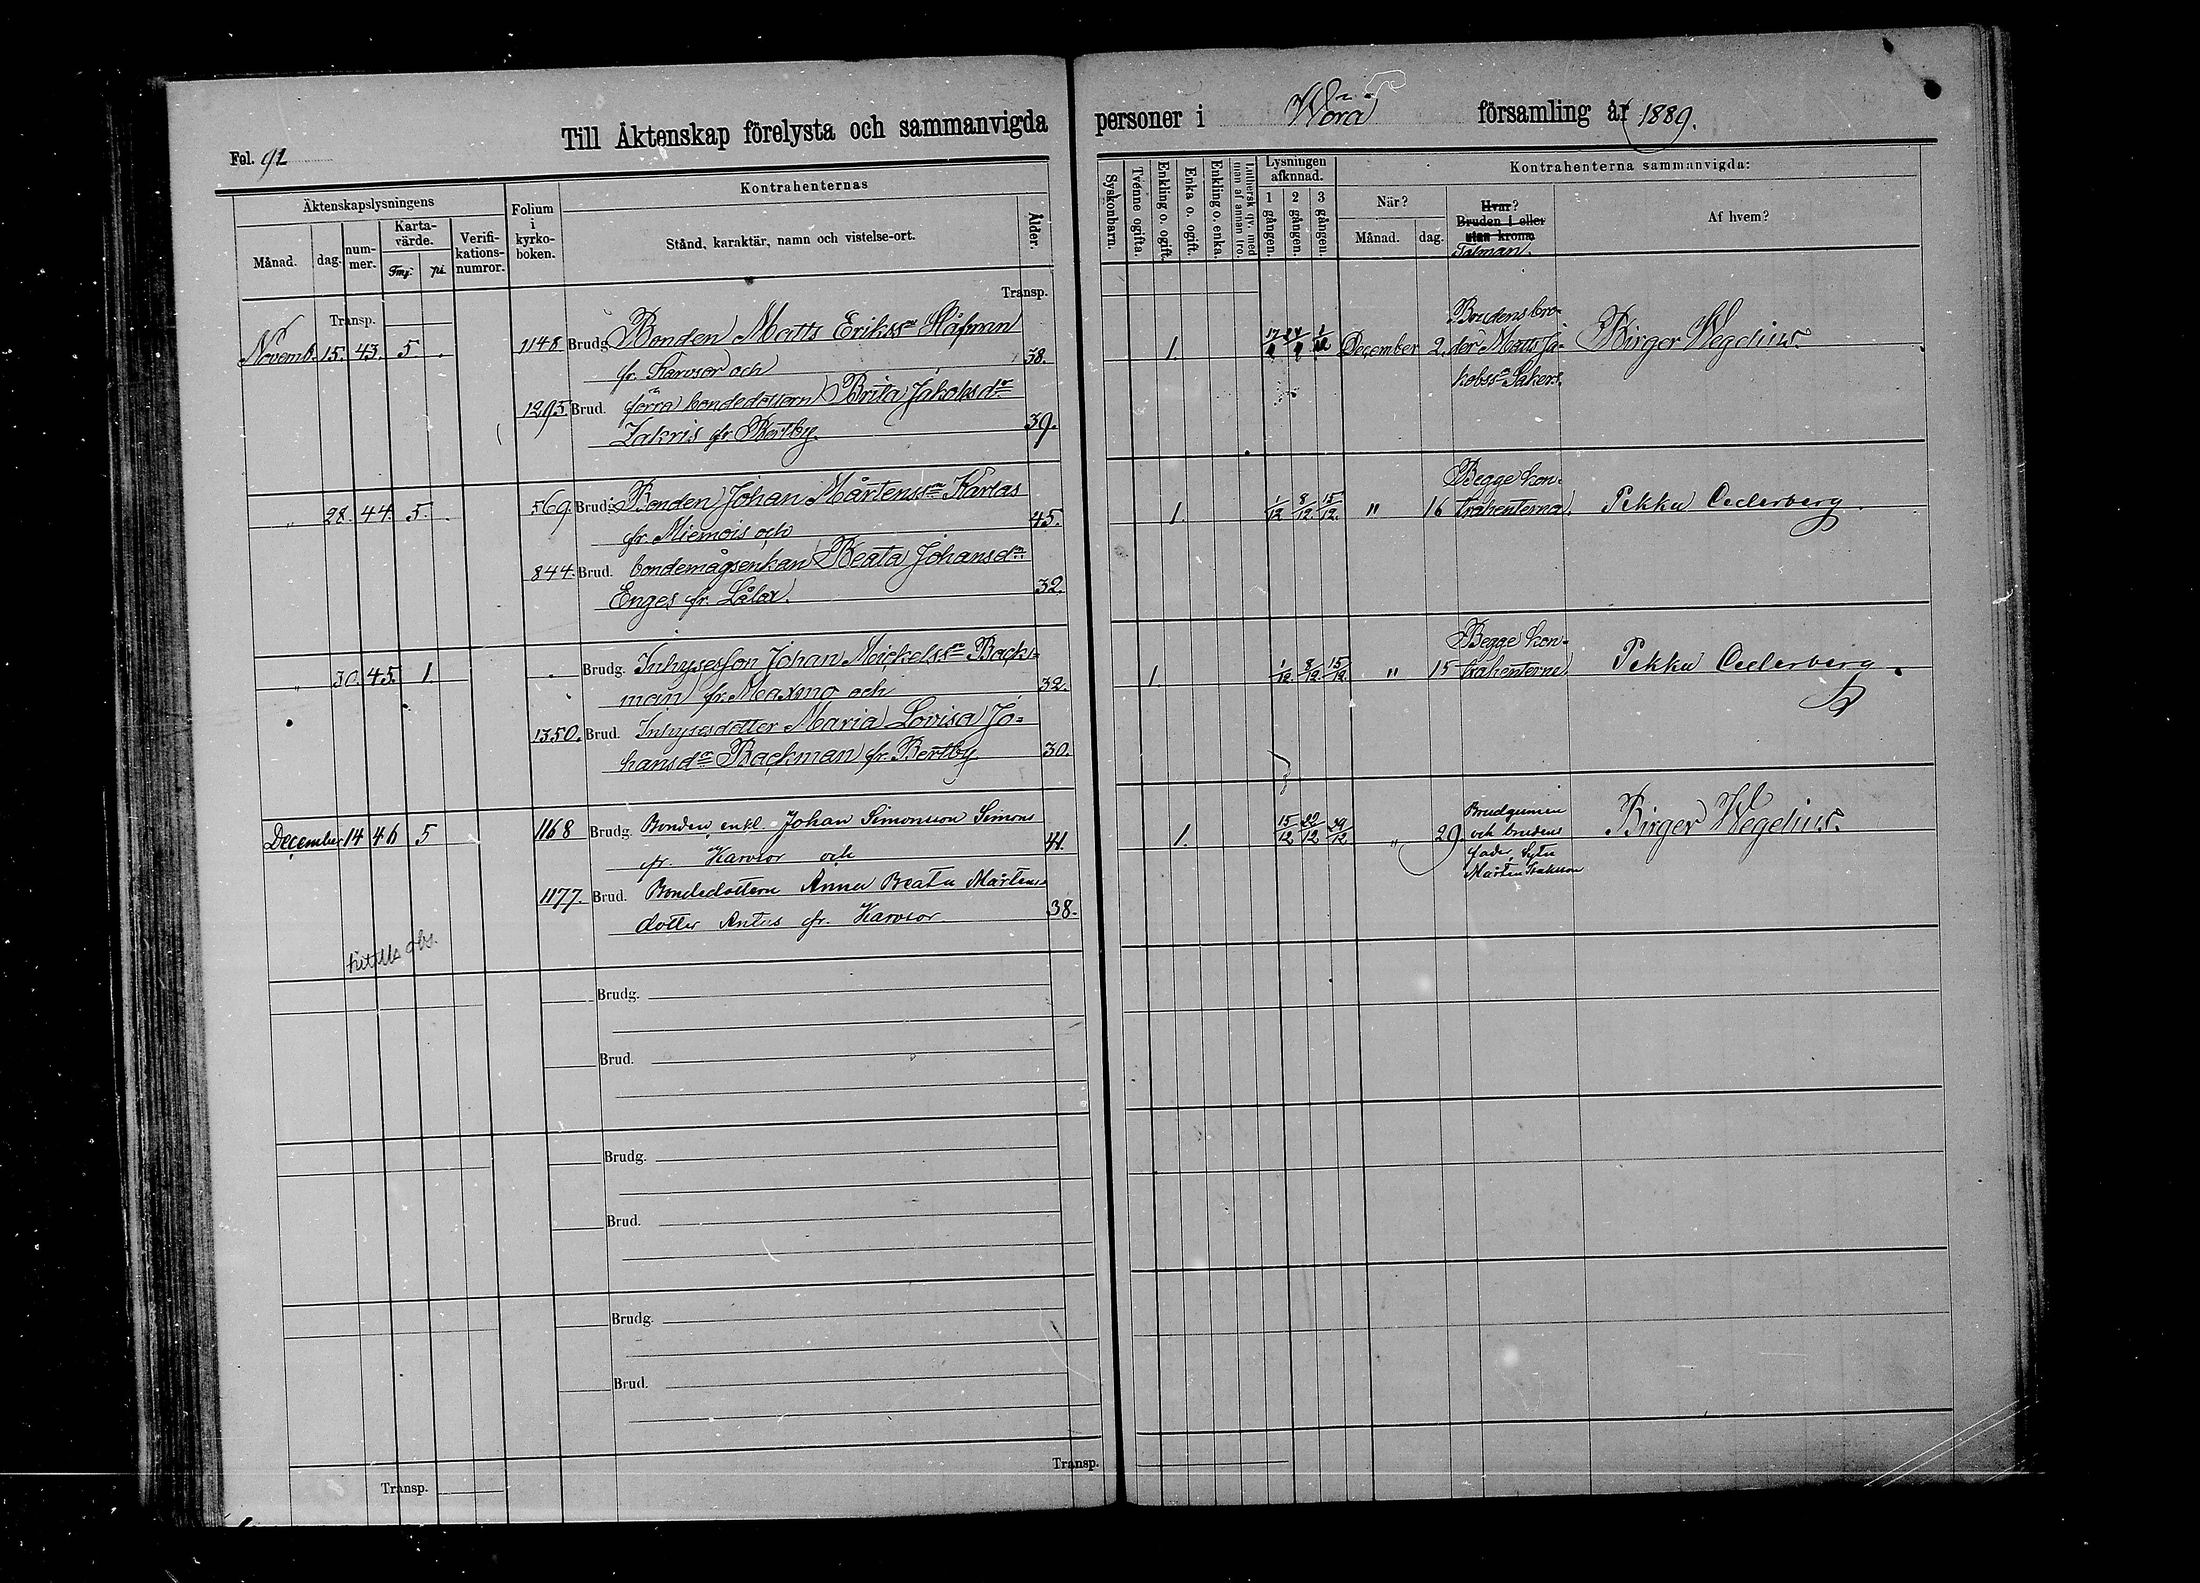 Till Äktenskap förelysta och sammanvigda personer i Wörå församling år 1889.
Fol. 92
Äktenskapslysningens
Månad.
dag.
num-
mer.
Karta-
värde.
Fmg. pi.
Verifi-
kations-
numror.
Folium
i
kyrko-
boken.
Kontrahenternas
Stånd, karaktär, namn och vistelse-ort.
Ålder.
Transp.
Transp.
Novemb. 15. 43. 5 . 1148 Brudg. Bonden Matts Erikssn Håfman
fr. Karvsor och 38.
1295. Brud. förra bondedottern Brita Jakobsdr
Zakris fr. Bertby. 39.
„ 28. 44. 5. . 569. Brudg. Bonden Johan Mårtenssn Karlas
fr. Miemois och 45.
844. Brud. bondemågsenkan Beata Johansdr
Enges fr. Lålax. 32.
„ 30. 45. 1. . Brudg. Inhysesson Johan Mickelssn Back-
man fr. Maxmo och 32.
1350. Brud. Inhysesdotter Maria Lovisa Jo-
hansdr Backman fr. Bertby. 30.
December 14 46 5 1168 Brudg. Bonden, enkl. Johan Simonsson Simons
fr. Karvsor och 41.
1177. Brud. Bondedottern Anna Beata Mårtens-
dotter Antus fr. Karvsor 38.
obs.
Brudg.
Brud.
Brudg.
Brud.
Brudg.
Brud.
Transp.
Transp.
Syskonbarn.
Tvenne ogifta.
Enkling o. ogift.
Enka o. ogift.
Enkling o. enka.
Luthersk qv. med
man af annan tro.
Lysningen
afkunnad.
1 gången.
2 gången.
3 gången.
Kontrahenterna sammanvigda:
När?
Månad. dag.
Hvar?
Bruden i eller
utan krona
Talman.
Af hvem?
1. December 2. Brudens bro-
der Matts Ja-
kobssn Sakers. Birger Wegelius.
1. 1/12 8/12 15/12. " 16 Begge kon-
trahenterna. Pekka Cederberg.
1. 1/12. 8/12 15/12. " 15 Begge kon-
trahenterne Pekka Cederberg.
1. 15/12 22/12 29/12. „ 29. Brudgummen
och brudens
fader, Sytn
Mårten Isaksson Birger Wegelius.